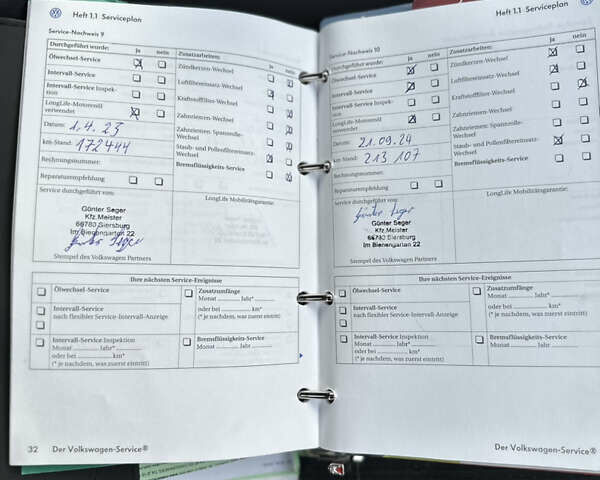 Heft 1.1 Serviceplan
Service-Nachweis 9
Durchgeführt wurde: ja nein
Zusatzarbeiten: ja nein
Ölwechsel-Service
Intervall-Service
Intervall-Service Inspek-
tion
LongLife-Motorenöl
verwendet
Datum: 1.4.23
km-Stand: 172444
Rechnungsnummer:
Reparaturempfehlung
Zündkerzen-Wechsel
Luftfiltereinsatz-Wechsel
Kraftstofffilter-Wechsel
Zahnriemen-Wechsel
Zahnriemen- Spannrolle-
Wechsel
Staub- und Pollenfiltereinsatz-
Wechsel
Bremsflüssigkeits-Service
Service durchgeführt von:
LongLife Mobilitätsgarantie:
Günter Seger
Kfz.Meister
66780 Siersburg
Im Bienengarten 22
Stempel des Volkswagen Partners
Ihre nächsten Service-Ereignisse
Ölwechsel-Service
Intervall-Service
nach flexibler Service-Intervall-Anzeige
Intervall-Service Inspektion
Monat .............. Jahr*..............
oder bei .............. km*
(* je nachdem, was zuerst eintritt)
Zusatzumfänge
Monat .............. Jahr*..............
oder bei .............. km*
(* je nachdem, was zuerst eintritt)
Bremsflüssigkeits-Service
Monat .............. Jahr*..............
32 Der Volkswagen-Service®
Heft 1.1 Serviceplan
Service-Nachweis 10
Durchgeführt wurde: ja nein
Zusatzarbeiten: ja nein
Ölwechsel-Service
Intervall-Service
Intervall-Service Inspek-
tion
LongLife-Motorenöl
verwendet
Datum: 21.09.24
km-Stand: 213 107
Rechnungsnummer:
Reparaturempfehlung
Zündkerzen-Wechsel
Luftfiltereinsatz-Wechsel
Kraftstofffilter-Wechsel
Zahnriemen-Wechsel
Zahnriemen- Spannrolle-
Wechsel
Staub- und Pollenfiltereinsatz-
Wechsel
Bremsflüssigkeits-Service
Service durchgeführt von:
LongLife Mobilitätsgarantie:
Günter Seger
Kfz.Meister
66780 Siersburg
Im Bienengarten 22
Stempel des Volkswagen Partners
Ihre nächsten Service-Ereignisse
Ölwechsel-Service
Intervall-Service
nach flexibler Service-Intervall-Anzeige
Intervall-Service Inspektion
Monat .............. Jahr*..............
oder bei .............. km*
(* je nachdem, was zuerst eintritt)
Zusatzumfänge
Monat .............. Jahr*..............
oder bei .............. km*
(* je nachdem, was zuerst eintritt)
Bremsflüssigkeits-Service
Monat .............. Jahr*..............
Der Volkswagen-Service®